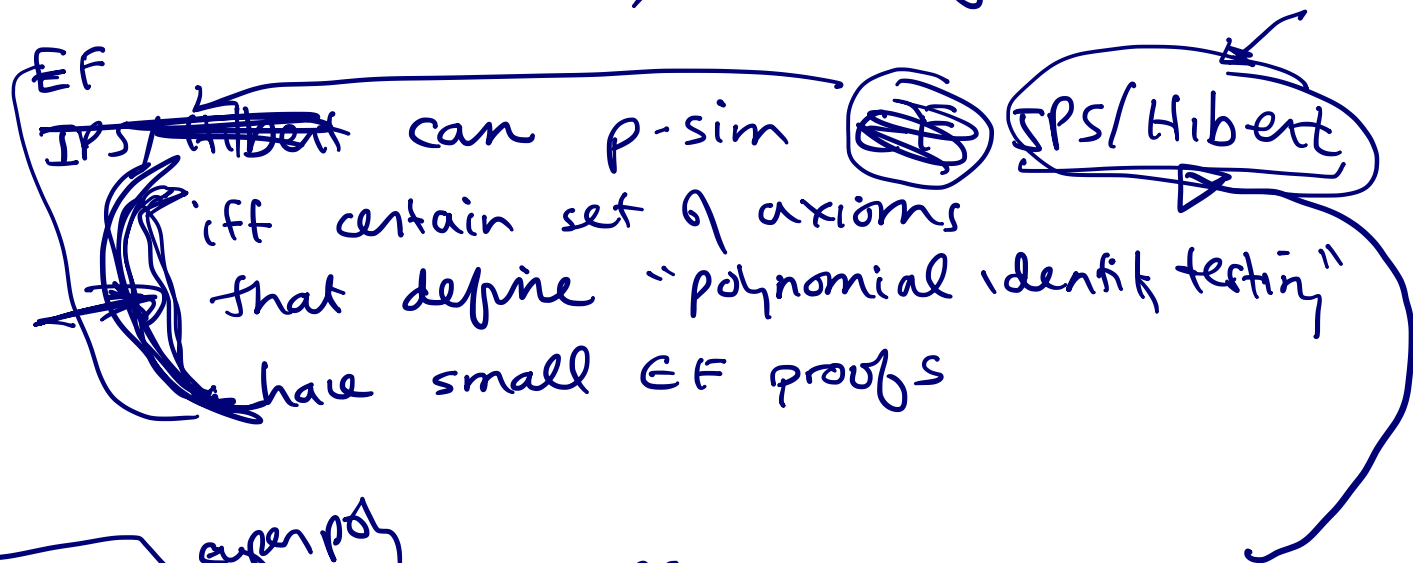 EF
IPS/Hilbert can p-sim IPS/Hibert
iff certain set of axioms
that define "polynomial identity testing"
have small EF proofs
superpoly